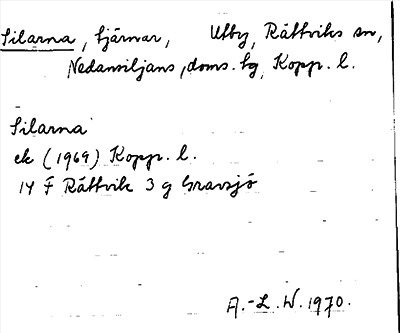 Silarna, tjärnar, Utby, Rättviks sn,
Nedansiljans, doms. fg, Kopp. l.
Silarna
ek (1969) Kopp. l.
14 F Rättvik 3 g Gravsjö
A.-L. W. 1970.